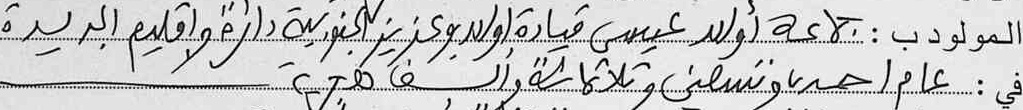 المولود ب: جماعة أولاد عيسى قيادة أولاد بوعزيز الجنوبية دائرة وإقليم الجديدة
في: عام احدى وتسعين وثلاثمائة وألف هجرية